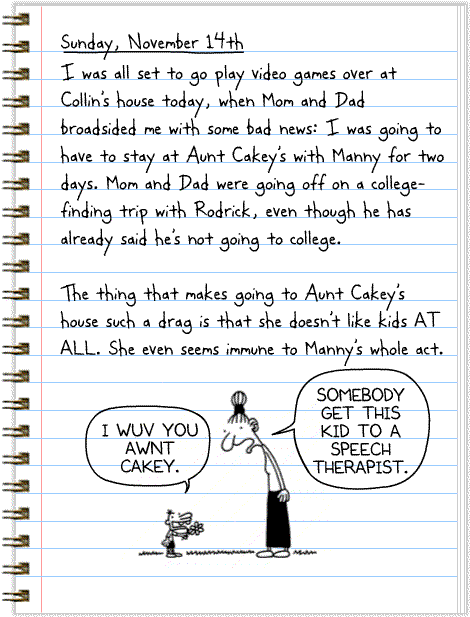 Sunday, November 14th
I was all set to go play video games over at
Collin's house today, when Mom and Dad
broadsided me with some bad news: I was going to
have to stay at Aunt Cakey's with Manny for two
days. Mom and Dad were going off on a college-
finding trip with Rodrick, even though he has
already said he's not going to college.
The thing that makes going to Aunt Cakey's
house such a drag is that she doesn't like kids AT
ALL. She even seems immune to Manny's whole act.
I WUV YOU
AWNT
CAKEY.
SOMEBODY
GET THIS
KID TO A
SPEECH
THERAPIST.